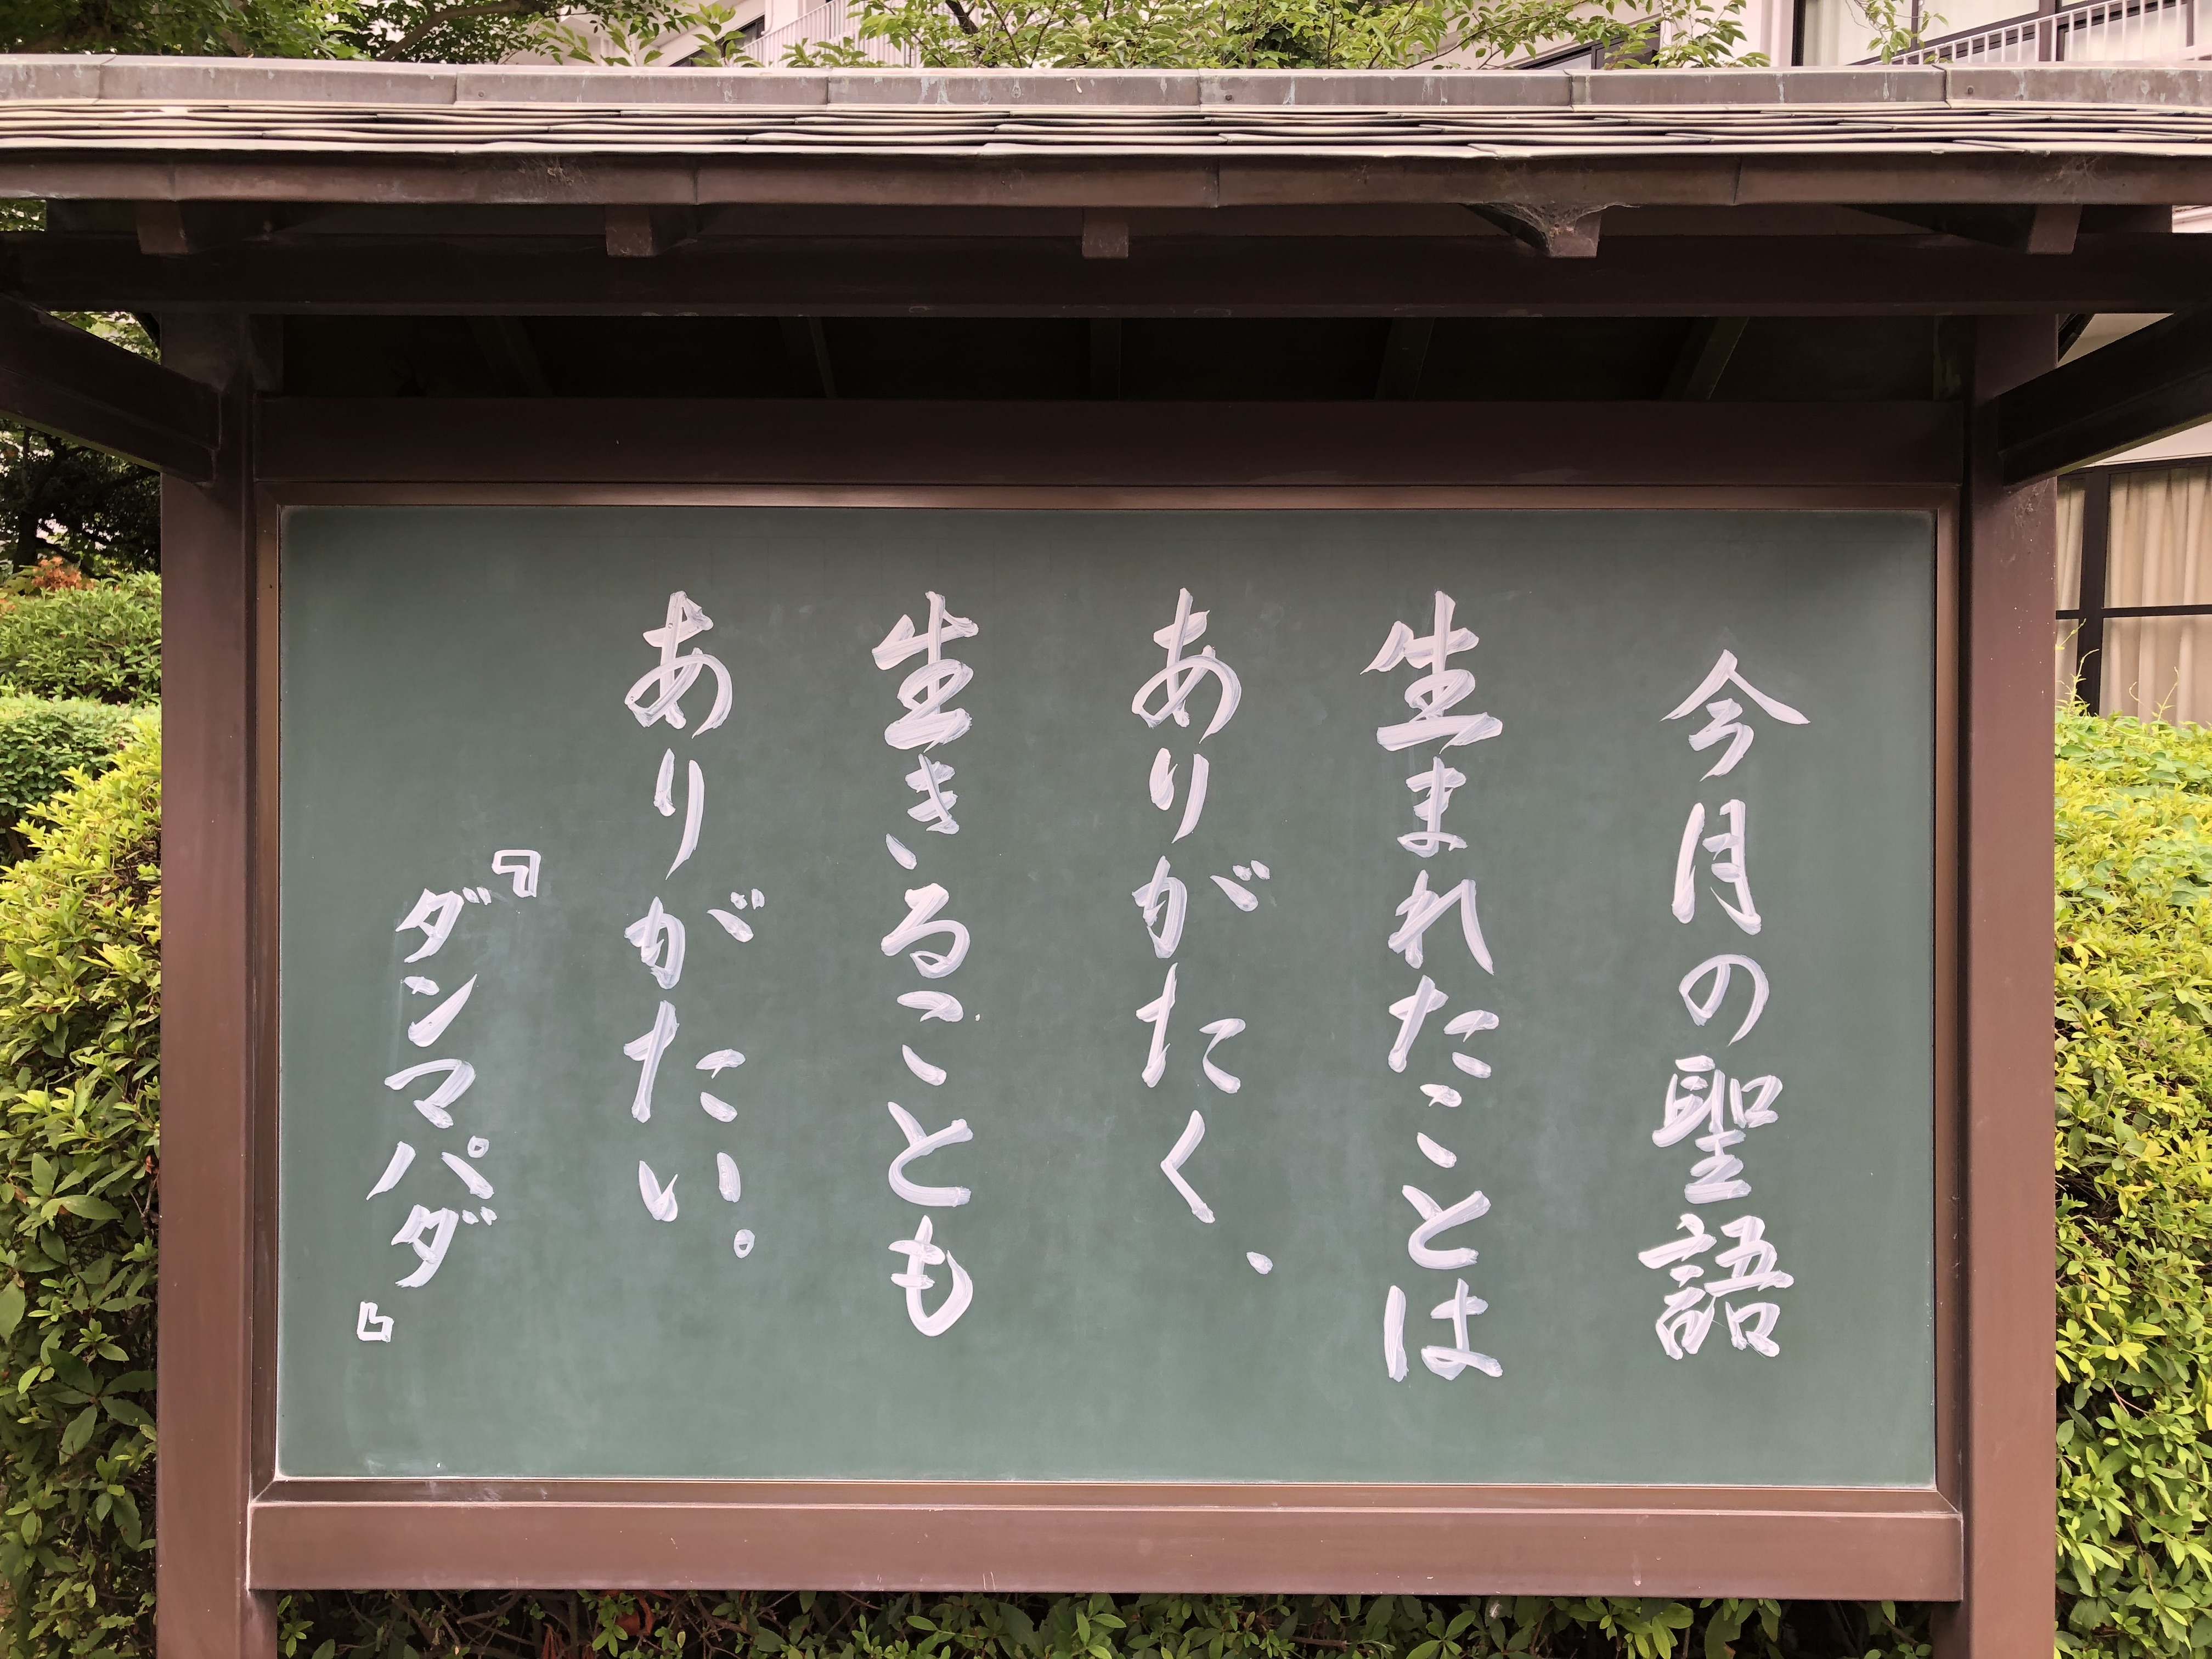 今月の聖語
生まれたことは
ありがたく、
生きることも
ありがたい。
『ダンマパダ』